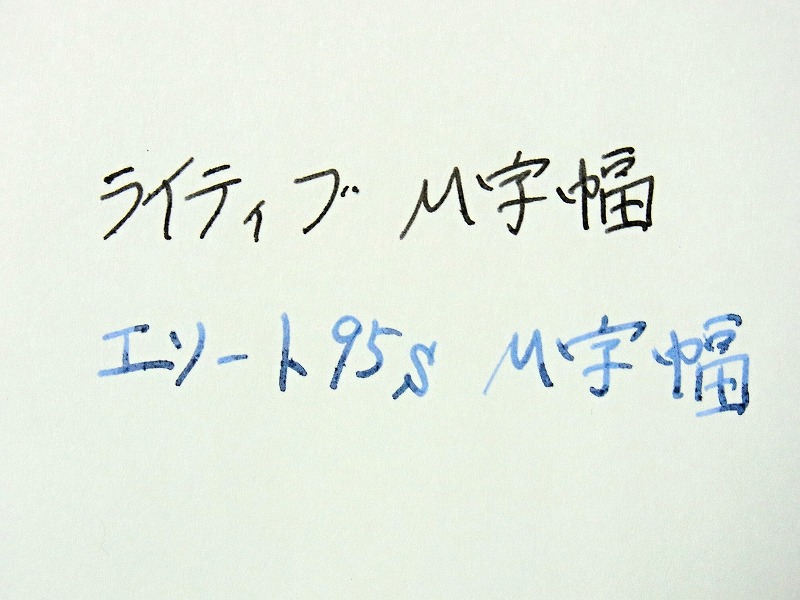 ライティブ M字幅
エソート95s M字幅